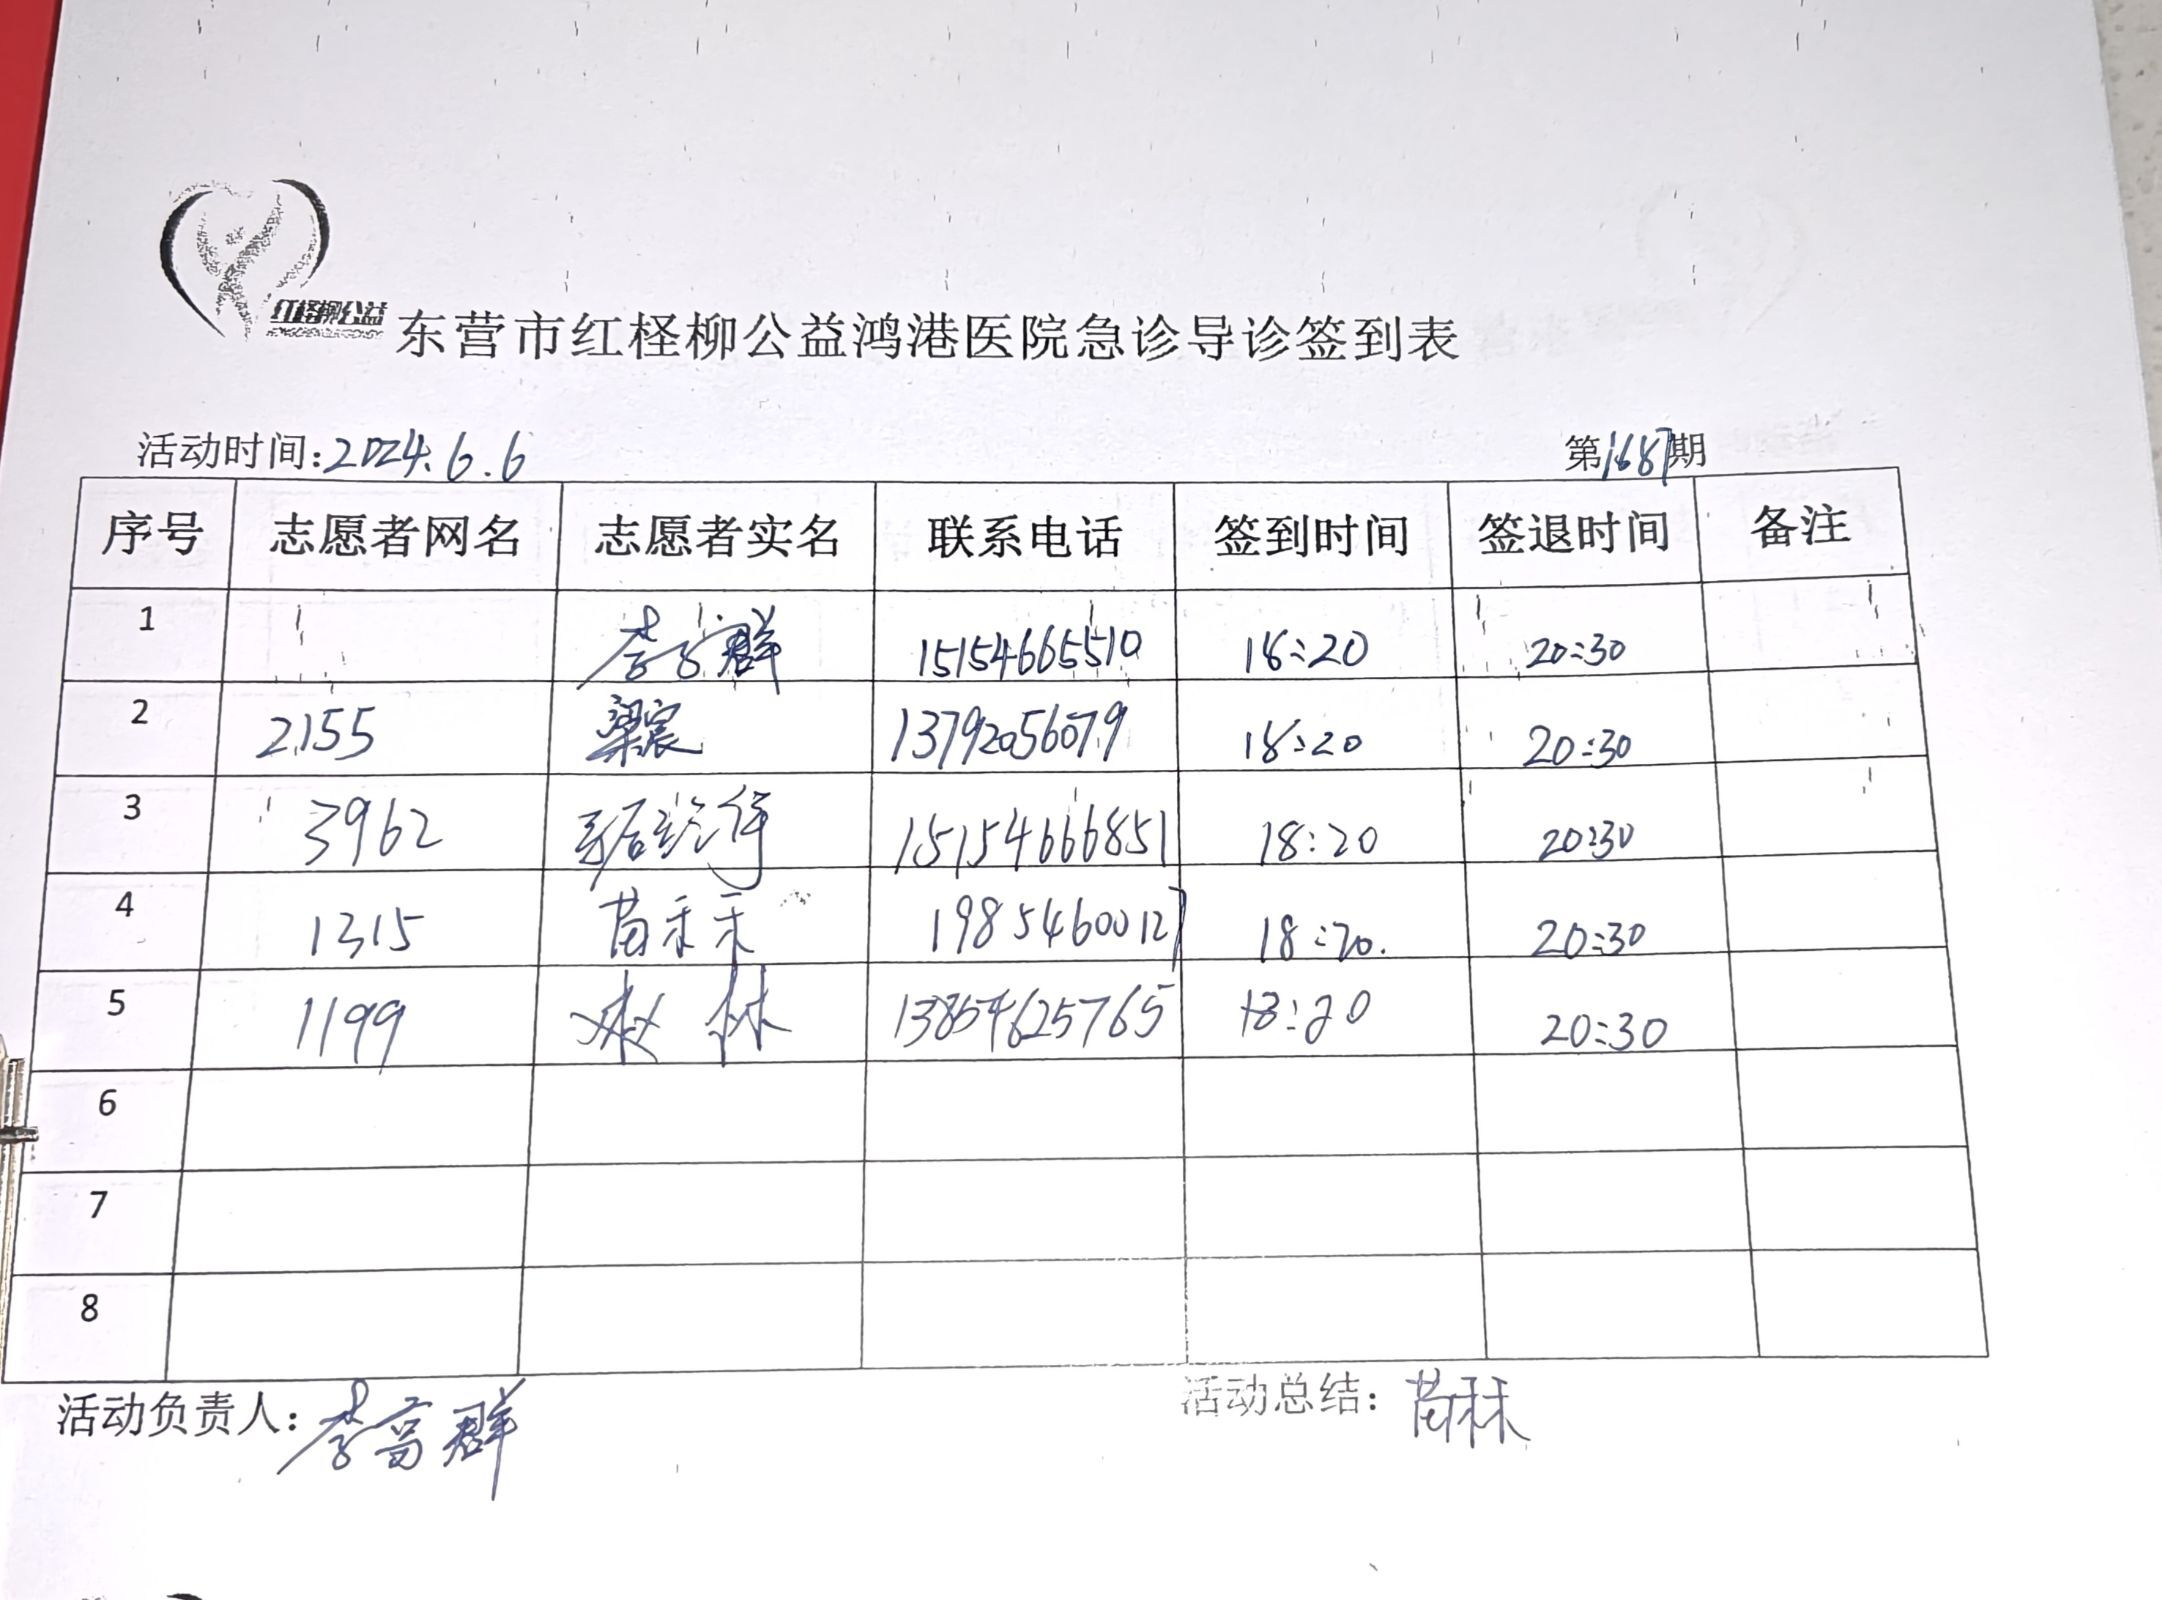 红柽柳公益
东营市红柽柳公益鸿港医院急诊导诊签到表
活动时间:2024.6.6 第1687期
序号 志愿者网名 志愿者实名 联系电话 签到时间 签退时间 备注
1 15154665510 18:20 20:30
2 2155 梁宸 13792056079 18:20 20:30
3 3962 15154666851 18:20 20:30
4 1315 苗禾禾 19854600127 18:20. 20:30
5 1199 赵林 13854625765 18:20 20:30
6
7
8
活动负责人:李富群 活动总结:苗禾禾